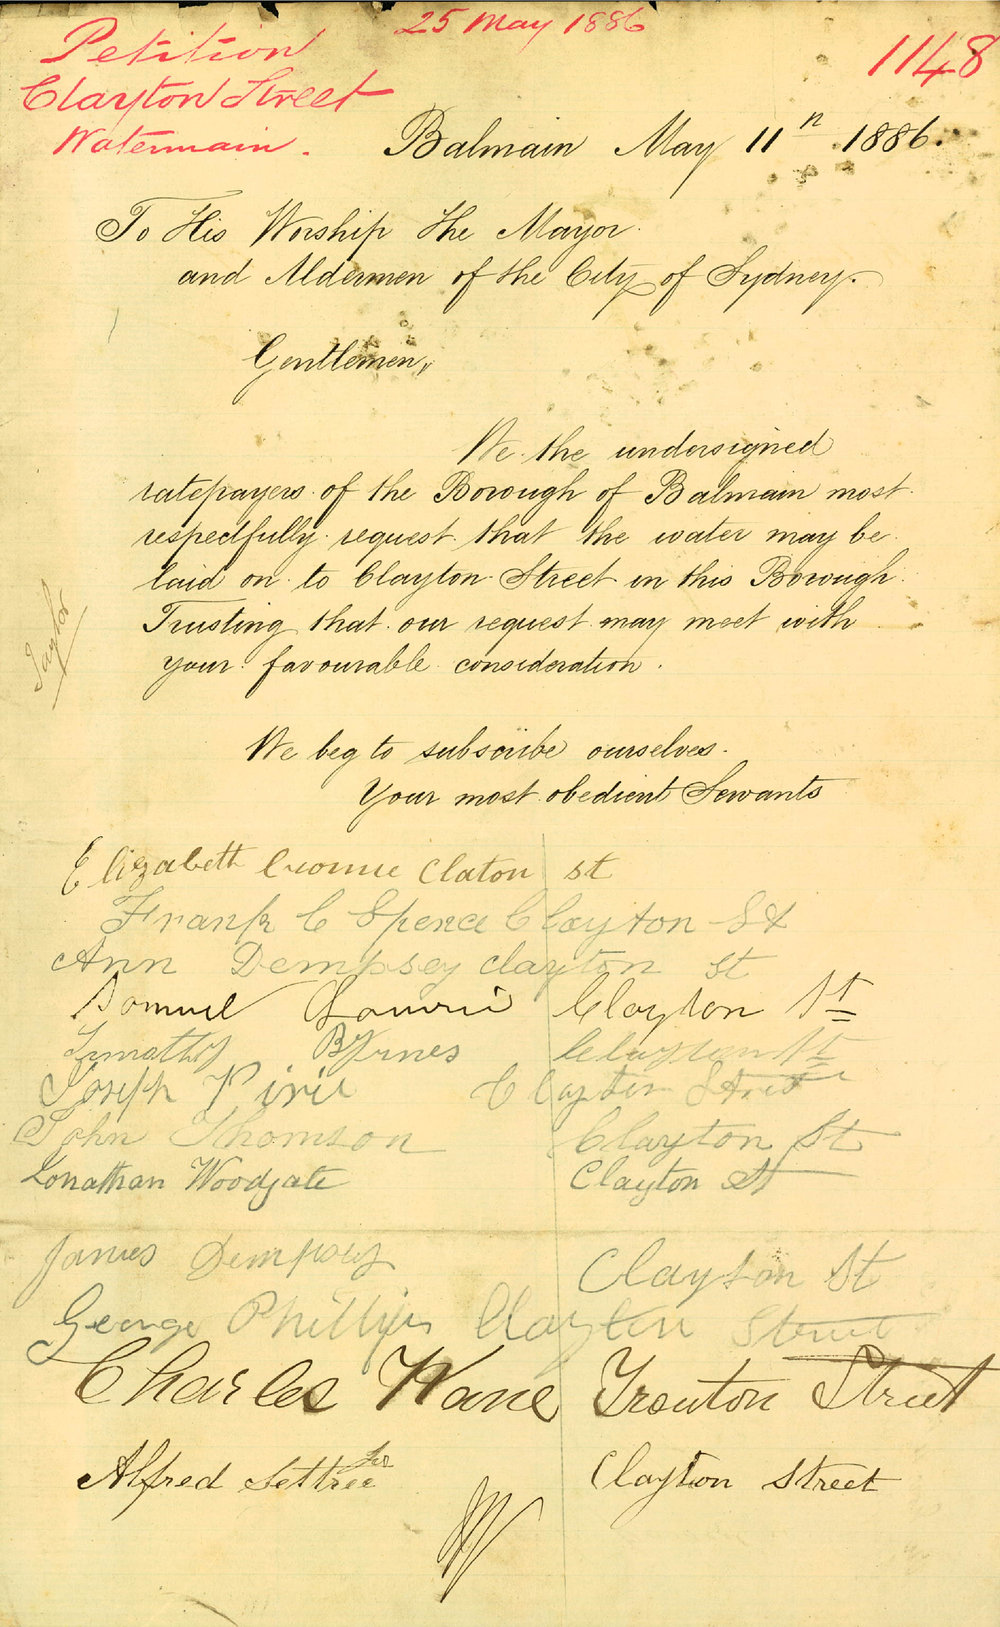 25 May 1886
Petition
1148
Clayton Street
Watermain.
Balmain May 11n 1886.
To His Worship the Mayor
and Aldermen of the City of Sydney.
Gentlemen,
We the undersigned
ratepayers of the Borough of Balmain most
respectfully request that the water may be
laid on to Clayton Street in this Borough.
Trusting that our request may meet with
your favourable consideration.
Taylor
We beg to subscribe ourselves
Your most obedient Servants
Elizabeth Claton st
Frank C Spence Clayton St
Ann Dempsey Clayton st
Samuel Lourie Clayton St
Timothy Byrnes Clayton St
Joseph Pirie Clayton Street
John Thomson Clayton St
Jonathan Woodgate Clayton St
James Dempsey Clayton St
George Phillips Clayton Street
Charles Wane Trouton Street
Alfred Settree Clayton Street